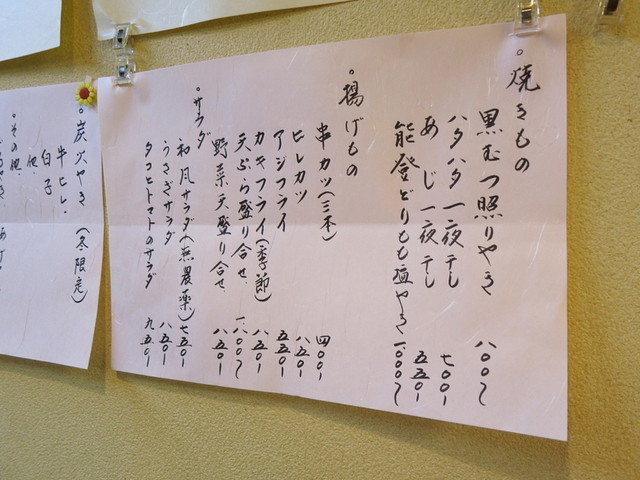 。焼きもの
黒むつ照りやき 八〇〇〜
ハタハタ一夜干し 七〇〇ー
あじ一夜干し 五五〇ー
能登どりもも塩やき 一、〇〇〇〜
。揚げもの
串カツ(三本) 四〇〇ー
ヒレカツ 八五〇ー
アジフライ 五五〇ー
カキフライ(季節) 八五〇ー
天ぷら盛り合せ 一、八〇〇〜
野菜天盛り合せ 八五〇ー
。サラダ
和風サラダ(無農薬) 七五〇ー
うさぎサラダ 八五〇ー
タコとトマトのサラダ 九五〇ー
。炭火やき(冬限定)
牛ヒレ.
白子
他、
。その他、